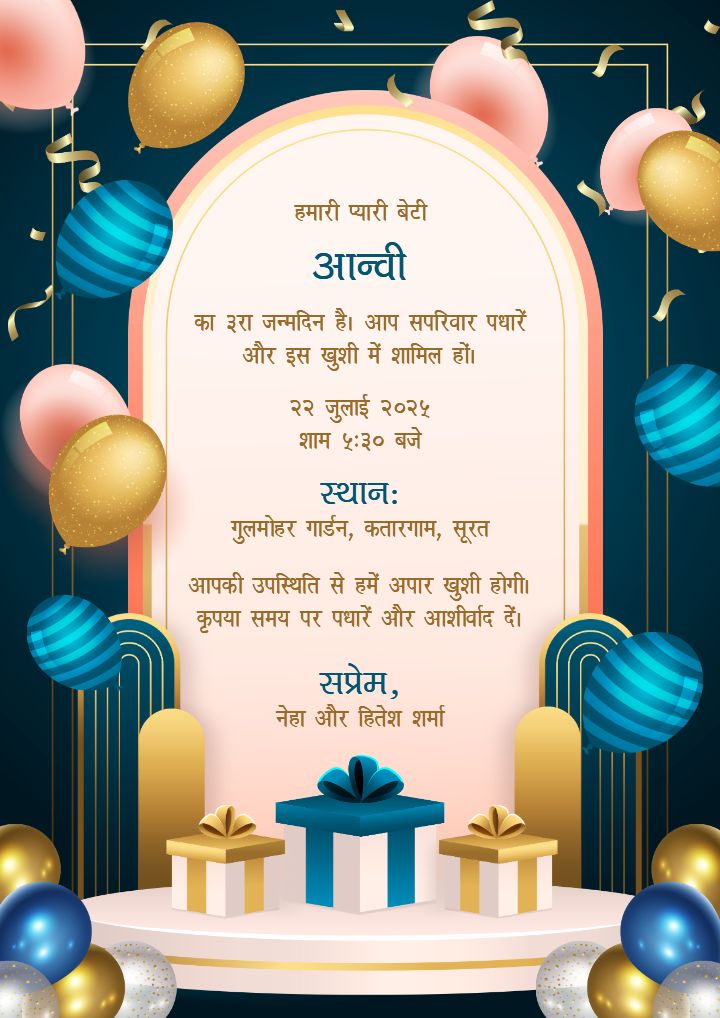 हमारी प्यारी बेटी
आन्वी
का ३रा जन्मदिन है। आप सपरिवार पधारें
और इस खुशी में शामिल हों।
२२ जुलाई २०२५
शाम ५:३० बजे
स्थान:
गुलमोहर गार्डन, कतारगाम, सूरत
आपकी उपस्थिति से हमें अपार खुशी होगी।
कृपया समय पर पधारें और आशीर्वाद दें।
सप्रेम,
नेहा और हितेश शर्मा